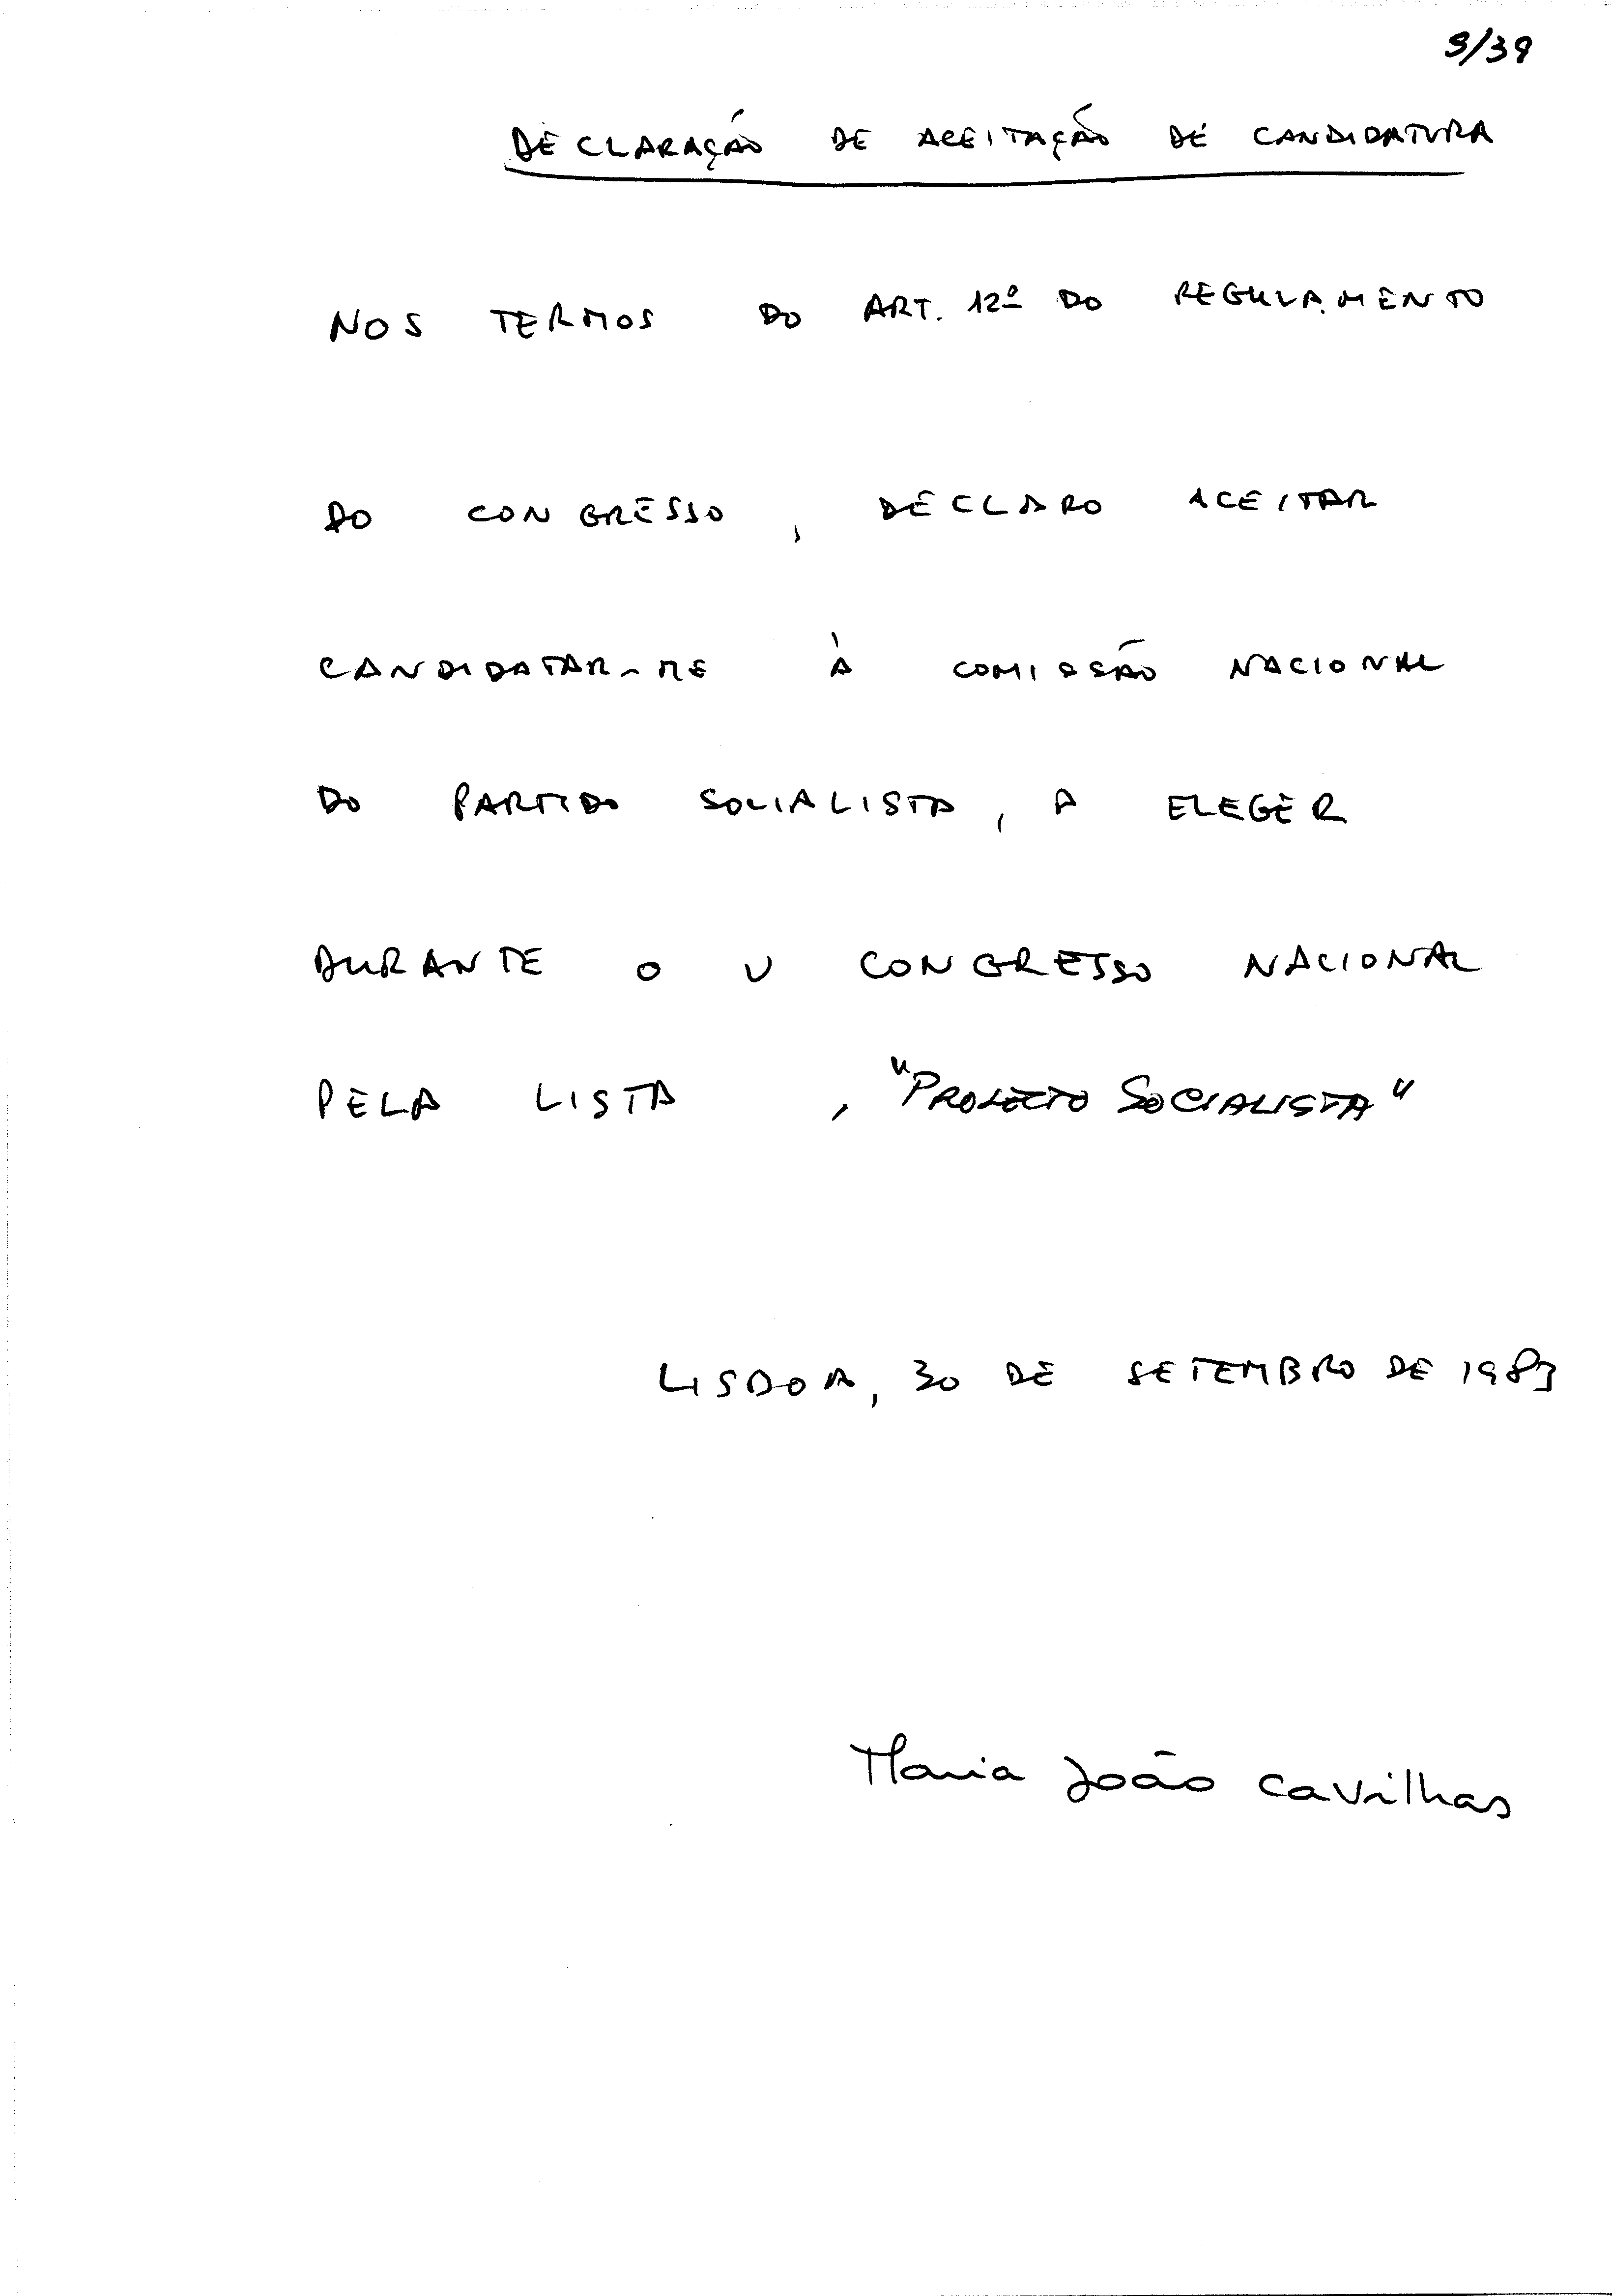 9/39
DECLARAÇÃO DE ACEITAÇÃO DE CANDIDATURA
NOS TERMOS DO ART. 12º DO REGULAMENTO
DO CONGRESSO, DECLARO ACEITAR
CANDIDATAR-ME À COMISSÃO NACIONAL
DO PARTIDO SOCIALISTA, A ELEGER
DURANTE O V CONGRESSO NACIONAL
PELA LISTA, "PROJECTO SOCIALISTA"
LISBOA, 30 DE SETEMBRO DE 1983
Maria João Cavilhas